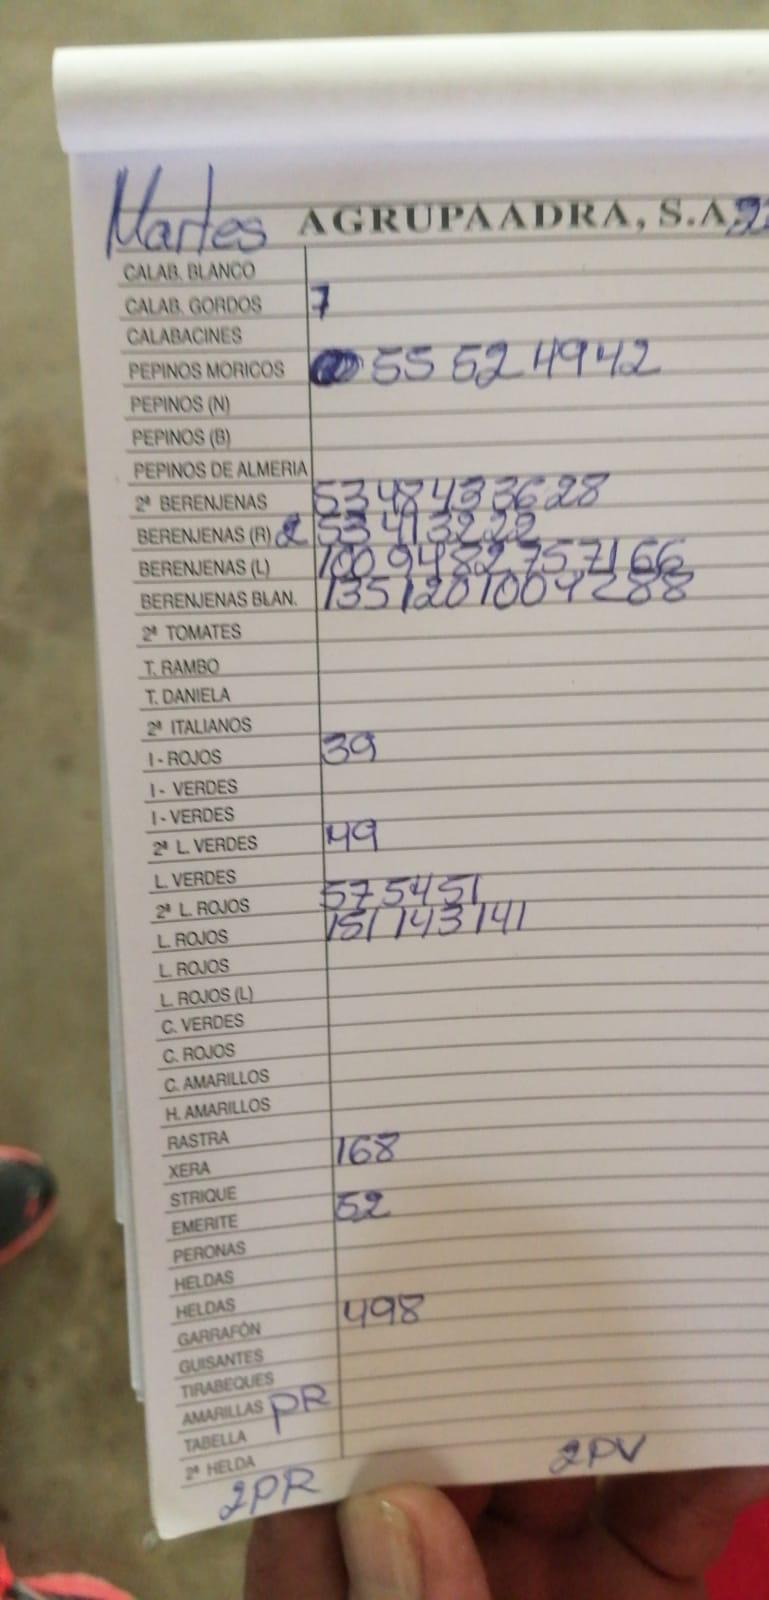 Martes AGRUPAADRA, S.A.
CALAB. BLANCO
CALAB. GORDOS 7
CALABACINES
PEPINOS MORICOS 55 52 49 42
PEPINOS (N)
PEPINOS (B)
PEPINOS DE ALMERIA
2ª BERENJENAS 53 48 43 36 28
BERENJENAS (R) 2 53 41 32 22
BERENJENAS (L) 100 94 82 75 71 66
BERENJENAS BLAN. 135 120 100 92 88
2ª TOMATES
T. RAMBO
T. DANIELA
2ª ITALIANOS
I - ROJOS 39
I - VERDES
I - VERDES
2ª L. VERDES 49
L. VERDES
2ª L. ROJOS 57 54 51
L. ROJOS 151 143 141
L. ROJOS
L. ROJOS (L)
C. VERDES
C. ROJOS
C. AMARILLOS
H. AMARILLOS
RASTRA
XERA 168
STRIQUE
EMERITE 52
PERONAS
HELDAS
HELDAS
GARRAFÓN 498
GUISANTES
TIRABEQUES
AMARILLAS PR
TABELLA
2ª HELDA
2PR 2PV